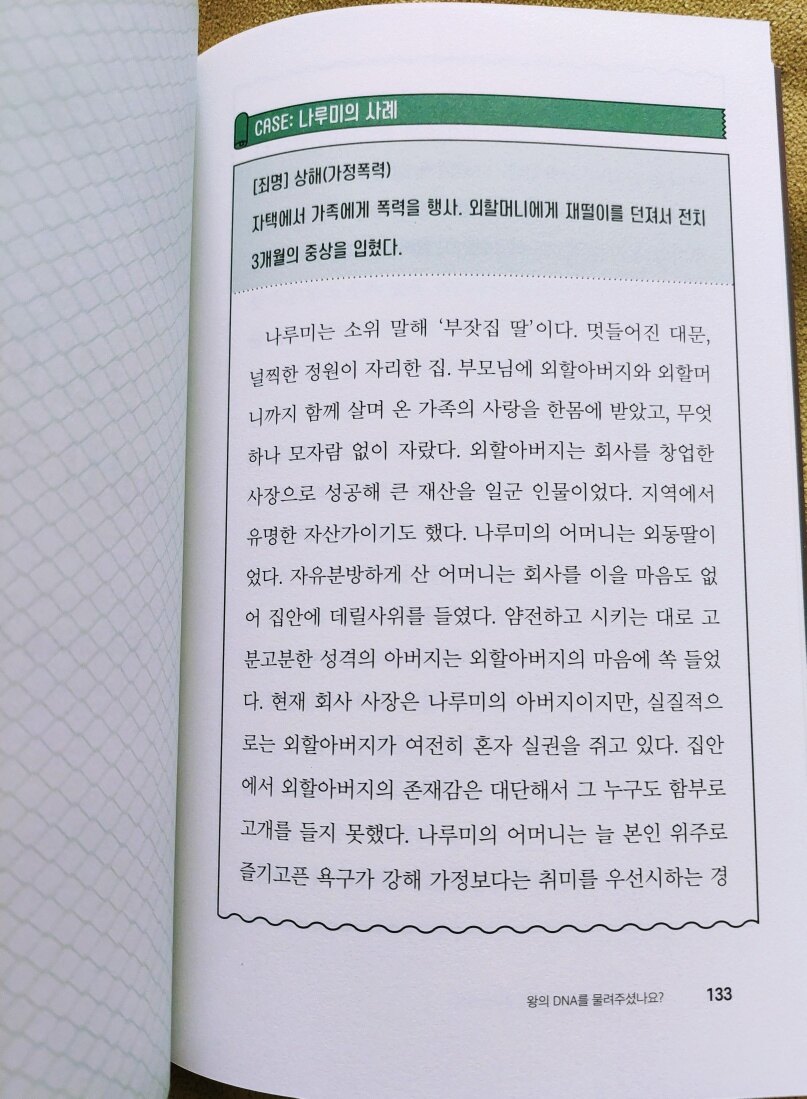 CASE: 나루미의 사례
[죄명] 상해(가정폭력)
자택에서 가족에게 폭력을 행사. 외할머니에게 재떨이를 던져서 전치
3개월의 중상을 입혔다.
나루미는 소위 말해 ‘부잣집 딸’이다. 멋들어진 대문,
널찍한 정원이 자리한 집. 부모님에 외할아버지와 외할머
니까지 함께 살며 온 가족의 사랑을 한몸에 받았고, 무엇
하나 모자람 없이 자랐다. 외할아버지는 회사를 창업한
사장으로 성공해 큰 재산을 일군 인물이었다. 지역에서
유명한 자산가이기도 했다. 나루미의 어머니는 외동딸이
었다. 자유분방하게 산 어머니는 회사를 이을 마음도 없
어 집안에 데릴사위를 들였다. 얌전하고 시키는 대로 고
분고분한 성격의 아버지는 외할아버지의 마음에 쏙 들었
다. 현재 회사 사장은 나루미의 아버지이지만, 실질적으
로는 외할아버지가 여전히 혼자 실권을 쥐고 있다. 집안
에서 외할아버지의 존재감은 대단해서 그 누구도 함부로
고개를 들지 못했다. 나루미의 어머니는 늘 본인 위주로
즐기고픈 욕구가 강해 가정보다는 취미를 우선시하는 경
왕의 DNA를 물려주셨나요? 133